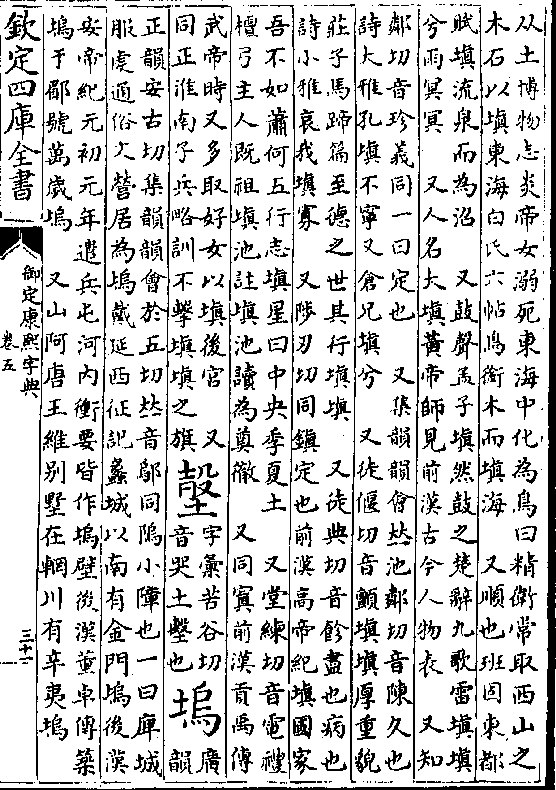 从土博物志炎帝女溺死東海中化為鳥曰精衛常取西山之
木石以填東海白氏六帖鳥銜木而填海　又順也班固東都
賦填流泉而為沼　又鼓聲孟子填然鼓之楚辭九歌雷填填
兮雨冥冥　又人名大填黄帝師見前漢古今人物表　又知
鄰切音珍義同一曰定也　又集韻韻會𠀤池鄰切音陳久也
詩大雅孔填不寧又倉兄填兮　又徒偃切音顫填填厚重貌
莊子馬蹄篇至德之世其行填填　又徒典切音飻盡也病也
詩小雅哀我填寡　又陟刃切同鎮定也前漢高帝紀填國家
吾不如蕭何五行志填星曰中央季夏土　又堂練切音電禮
檀弓主人既祖填池註填池讀為奠徹　又同寘前漢貢禹傳
武帝時又多取好女以填後宮　又
同正淮南子兵略訓不擊填填之旗
㙠
字彙苦谷切
音哭土墼也
塢
廣韻
正韻安古切集韻韻會於五切𠀤音鄔同隖小障也一曰庳城
服虔通俗文營居為塢戴延西征記蠡城以南有金門塢後漢
安帝紀元初元年遣兵屯河内衝要皆作塢壁後漢董卓傳築
塢于郿號萬歲塢　又山阿唐王維别墅在輞川有辛夷塢
欽定四庫全書
御定康熙字典
卷五
三十一